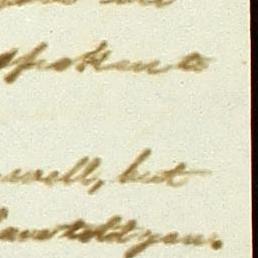 spoken to
well, but
have told you.